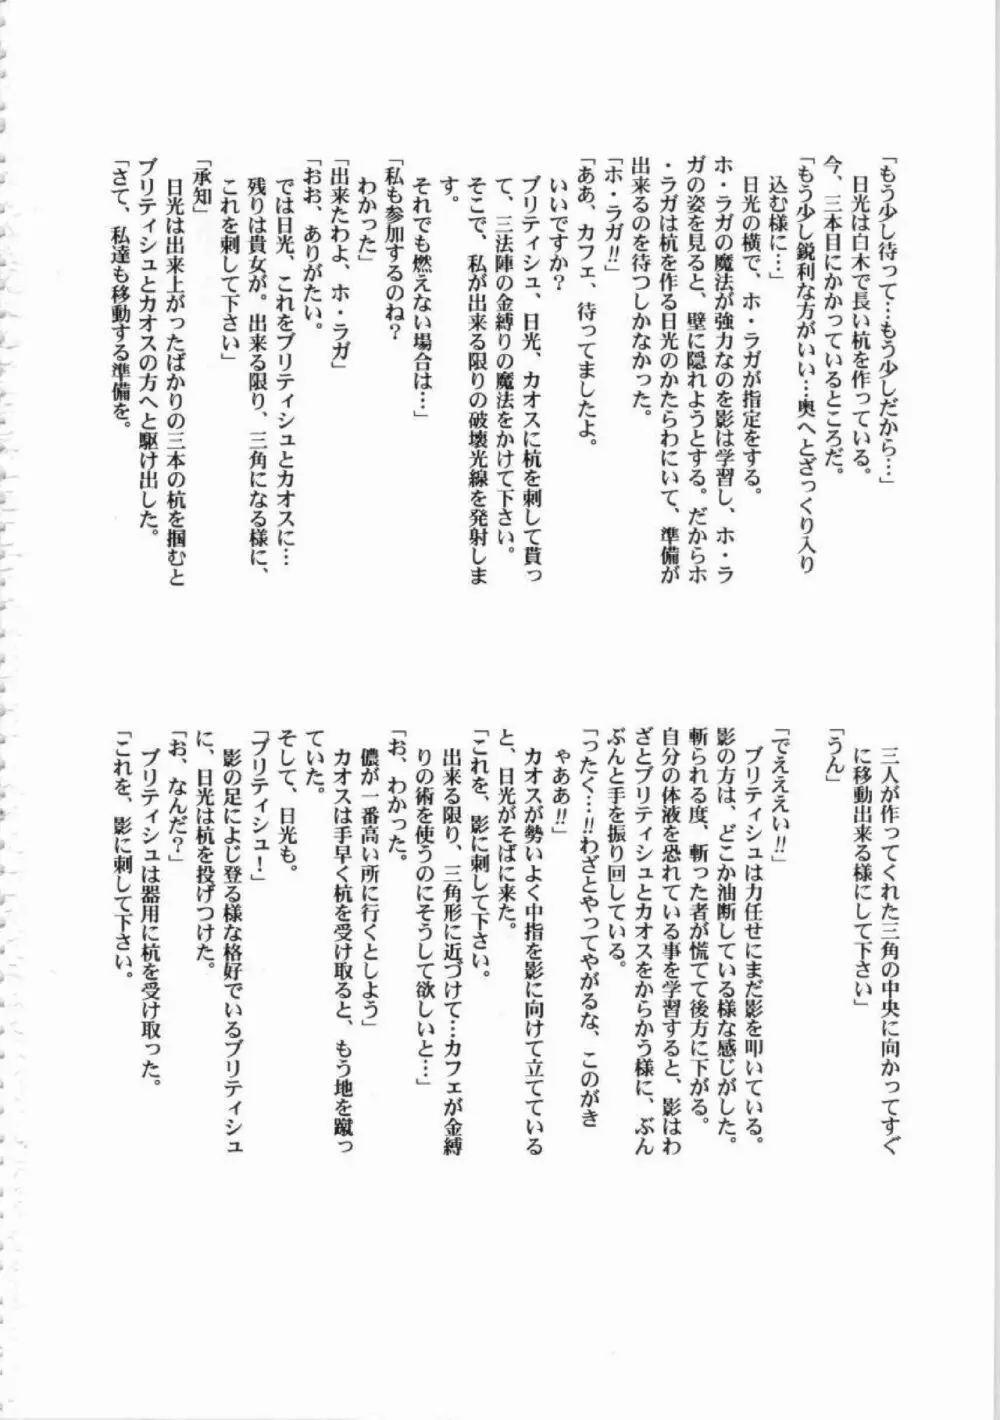 「もう少し待って…もう少しだから…」
日光は白木で長い杭を作っている。
今、三本目にかかっているところだ。
「もう少し鋭利な方がいい…奥へとざっくり入り
込む様に…」
日光の横で、ホ・ラガが指定をする。
ホ・ラガの魔法が強力なのを影は学習し、ホ・ラ
ガの姿を見ると、壁に隠れようとする。だからホ
・ラガは杭を作る日光のかたらわにいて、準備が
出来るのを待つしかなかった。
「ホ・ラガ!!」
「ああ、カフェ、待ってましたよ。
いいですか?
ブリティシュ、日光、カオスに杭を刺して貰っ
て、三法陣の金縛りの魔法をかけて下さい。
そこで、私が出来る限りの破壊光線を発射しま
す。
それでも燃えない場合は…」
「私も参加するのね?
わかった」
「出来たわよ、ホ・ラガ」
「おお、ありがたい。
では日光、これをブリティシュとカオスに…
残りは貴女が。出来る限り、三角になる様に、
これを刺して下さい」
「承知」
日光は出来上がったばかりの三本の杭を掴むと
ブリティシュとカオスの方へと駆け出した。
「さて、私達も移動する準備を。
三人が作ってくれた三角の中央に向かってすぐ
に移動出来る様にして下さい」
「うん」
「でえええい!!」
ブリティシュは力任せにまだ影を叩いている。
影の方は、どこか油断している様な感じがした。
斬られる度、斬った者が慌てて後方に下がる。
自分の体液を恐れている事を学習すると、影はわ
ざとブリティシュとカオスをからかう様に、ぶん
ぶんと手を振り回している。
「ったく…!!わざとやってやがるな、このがき
ゃああ!!」
カオスが勢いよく中指を影に向けて立てている
と、日光がそばに来た。
「これを、影に刺して下さい。
出来る限り、三角形に近づけて…カフェが金縛
りの術を使うのにそうして欲しいと…」
「お、わかった。
儂が一番高い所に行くとしよう」
カオスは手早く杭を受け取ると、もう地を蹴っ
ていた。
そして、日光も。
「ブリティシュ!」
影の足によじ登る様な格好でいるブリティシュ
に、日光は杭を投げつけた。
「お、なんだ?」
ブリティシュは器用に杭を受け取った。
「これを、影に刺して下さい。